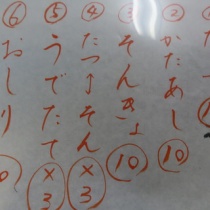 ② かたあし ⑩
③ そんきょ ⑩
④ たつ→そん ×3
⑤ うでたて ×3
⑥ おしり